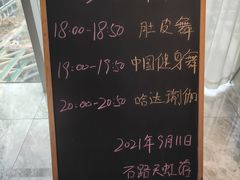 18:00-18:50 肚皮舞
19:00-19:50 中国健身舞
20:00-20:50 哈达瑜伽
2021年9月11日
石路天虹店